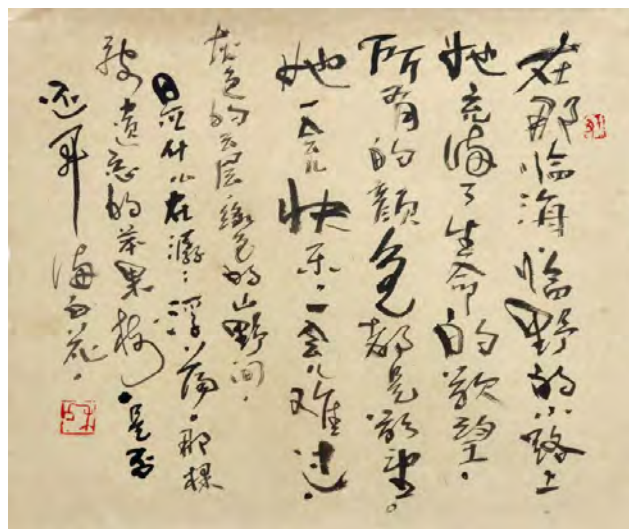 在那临海临野的小路上
她充满了生命的欲望。
所有的颜色都是欲望。
她一会儿快乐。一会儿难过。
灰色的云层绿色的山野间。
什么在浮荡。那棵
被遗忘的苹果树。是否
还开满白花。